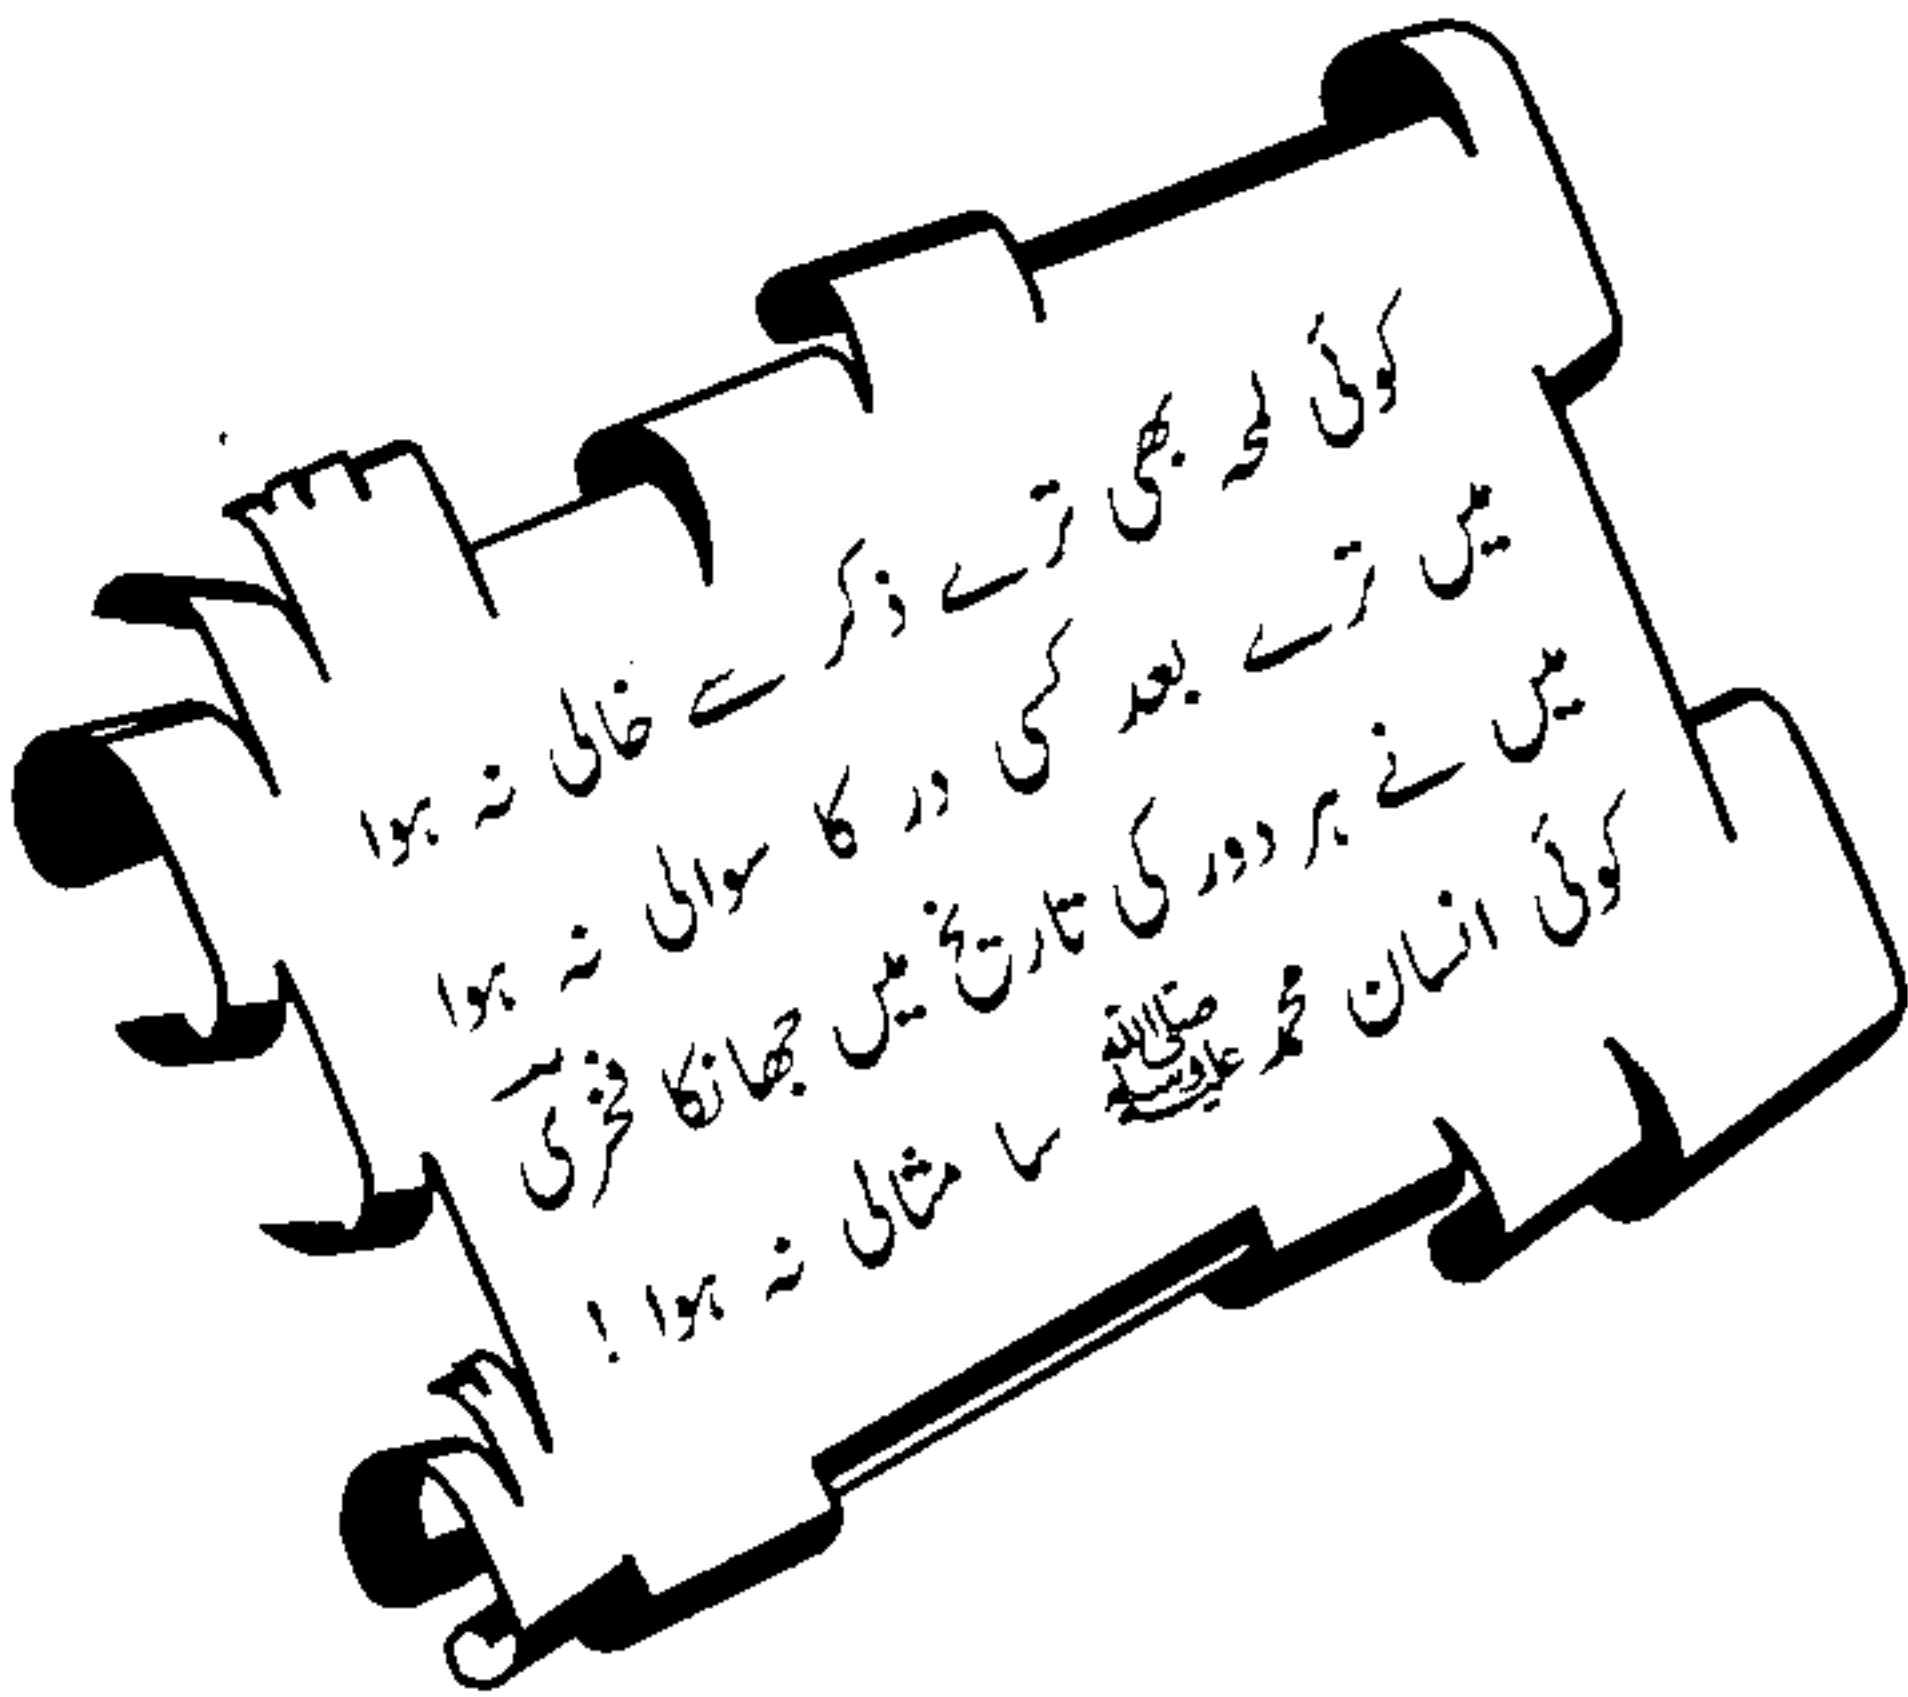 کوئی لمحہ بھی ترے ذکر سے خالی نہ ہوا
میں ترے بعد کسی در کا سوالی نہ ہوا
میں نے ہر دور کی تاریخ میں جھانکا فخریؔ
کوئی انسان محمد صلی اللہ علیہ وسلم سا مثالی نہ ہوا !